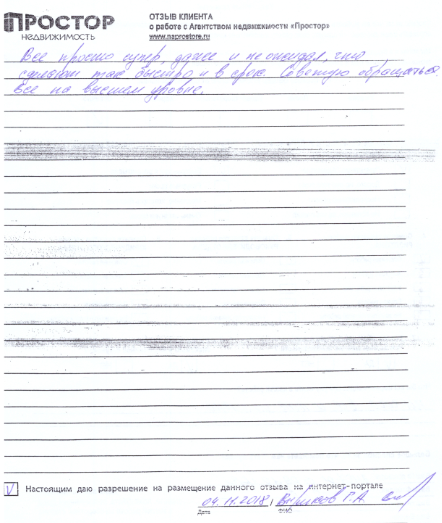 ПРОСТОР
НЕДВИЖИМОСТЬ
ОТЗЫВ КЛИЕНТА
о работе с Агентством недвижимости «Простор»
www.naprostore.ru
Все просто супер, даже и не ожидал, что
сделают так быстро и в срок. Советую обращаться,
все на высшем уровне.
V Настоящим даю разрешение на размещение данного отзыва на интернет-портале
04.11.2018,
Дата ФИО